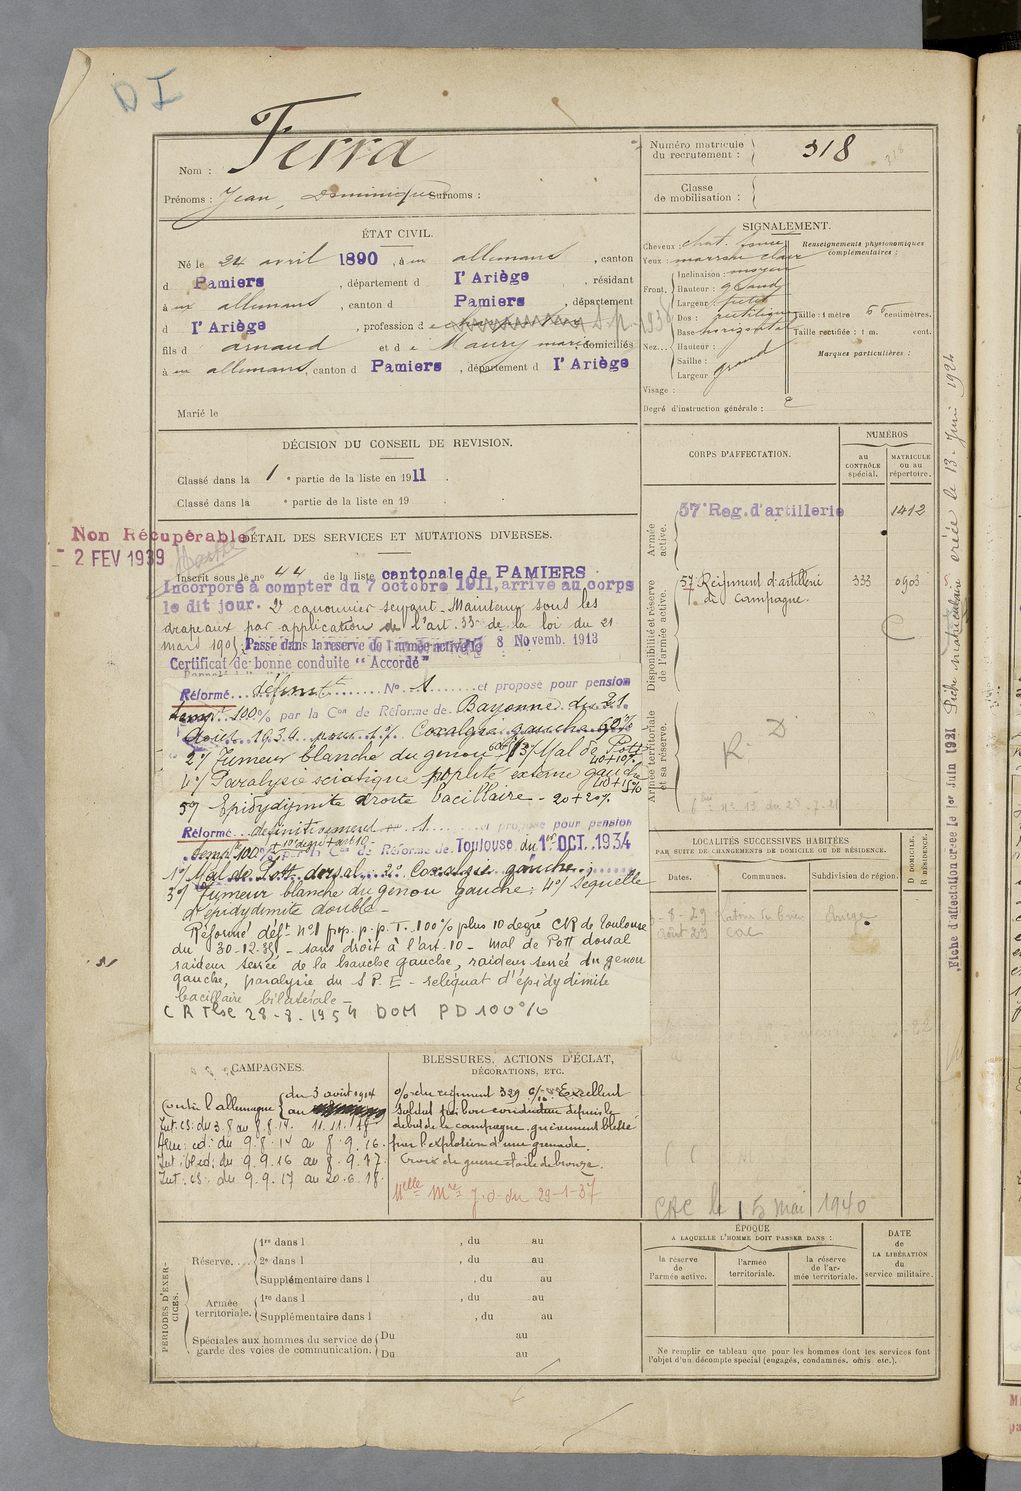 D I
Nom : Ferra
Prénoms : Jean, Dominique Surnoms :
Numéro matricule
du recrutement : 318
318
Classe
de mobilisation :
ÉTAT CIVIL.
Né le 24 avril 1890, à un allemans, canton
d Pamiers, département d l'Ariège, résidant
à un allemans, canton d Pamiers, département
d l'Ariège, profession de S.p. 1938
fils d arnaud et d e Maury marie, domiciliés
à un allemans, canton d Pamiers, département d l'Ariège
Marié le
SIGNALEMENT.
Cheveux : chat. foncé
Yeux : marron clair
Front. Inclinaison : moyen
Hauteur : grand
Largeur : petit
Nez... Dos : rectiligne
Base horizontal
Hauteur :
Saillie :
Largeur grand
Visage :
Degré d'instruction générale : 2
Renseignements physionomiques
complémentaires :
Taille : 1 mètre 66 centimètres.
Taille rectifiée : 1 m. cent.
Marques particulières :
DÉCISION DU CONSEIL DE REVISION.
Classé dans la 1 e partie de la liste en 1911.
Classé dans la e partie de la liste en 19
Non Récupérable
- 2 FEV 1939
DÉTAIL DES SERVICES ET MUTATIONS DIVERSES.
Inscrit sous le no 44 de la liste cantonale de PAMIERS
Incorporé à compter du 7 octobre 1911, arrivé au corps
le dit jour. 2e canonnier servant - Maintenu sous les
drapeaux par application de l'art. 33 de la loi du 21
mars 1905. Passé dans la réserve de l'armée active le 8 Novemb. 1913
Certificat de bonne conduite "Accordé"
Réformé définit No 1 et proposé pour pension
tempre 100% par la Con de Réforme de Bayonne du 21
Août 1934 pour 1o/ Coxalgie gauche 60%
2o/ Tumeur blanche du genou 3o/ Mal de Pott
40+10%
4o/ Paralysie sciatique poplité externe gauche
40+15%
5o/ Epidydimite droite bacillaire - 20+20%
Réformé définitivement no 1 et proposé pour pension
tempre 100% + 10 degré + art 10 par la Con de Réforme de Toulouse du 1er OCT. 1934
1o/ Mal de Pott dorsal 2o Coxalgie gauche
3o/ Tumeur blanche du genou gauche ; 4o/ Sequelle
d'epidydimite double -
Réformé déft no 1 prop. p. p. T. 100% plus 10 degré CR de Toulouse
du 30-12-35 - sans droit à l'art. 10 - mal de Pott dorsal
raideur serrée de la hanche gauche, raideur serrée du genou
gauche, paralysie du S P. E - reliquat d'épidydimite
bacillaire bilatérale -
C R Tlse 28-8-1954 DOM P D 100%
CORPS D'AFFECTATION.
NUMÉROS
au
CONTRÔLE
spécial.
MATRICULE
ou au
répertoire.
Armée
active.
57e Reg. d'artillerie 1412
Disponibilité et réserve
de l'armée active.
57 Régiment d'artillerie 333 0903
de Campagne.
C
Armée territoriale
et sa réserve.
R. D
Fiche d'affectation créée le 1er Juin 1921 Fiche matriculaire créée le 13 Juin 1924
LOCALITÉS SUCCESSIVES HABITÉES
PAR SUITE DE CHANGEMENTS DE DOMICILE OU DE RÉSIDENCE.
Dates. Communes. Subdivision de région.
D DOMICILE.
R RÉSIDENCE.
CAC le 15 mai 1940
CAMPAGNES.
Contre l'allemagne du 3 août 1914
au 11.11.18
Int. cs: du 3.8 au 8.8.14.
Arm: cd: du 9.8.14 au 8.9.16.
Int: bl cd: du 9.9.16 au 8.9.17
Int. cs: du 9.9.17 au 20.6.18.
BLESSURES, ACTIONS D'ÉCLAT,
DÉCORATIONS, ETC.
o/ du régiment 329 Excellent
Soldat très bon conducteur depuis le
début de la campagne. grièvement blessé
par l'explosion d'une grenade.
Croix de guerre étoile de bronze.
Mlle Mre J.O. du 29-1-37
PÉRIODES D'EXER-
CICES.
Réserve.... 1re dans l , du au
2e dans l , du au
Supplémentaire dans l , du au
Armée
territoriale. 1re dans l , du au
Supplémentaire dans l , du au
Spéciales aux hommes du service de
garde des voies de communication. Du au
Du au
ÉPOQUE
A LAQUELLE L'HOMME DOIT PASSER DANS :
la réserve
de
l'armée active.
l'armée
territoriale.
la réserve
de l'ar-
mée territoriale.
DATE
de
LA LIBÉRATION
du
service militaire.
Ne remplir ce tableau que pour les hommes dont les services font
l'objet d'un décompte spécial (engagés, condamnés, omis, etc.).